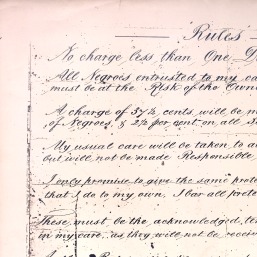 Rules
No charge less than One D
All Negroes entrusted to my ca
must be at the Risk of the Own
A charge of 37½ cents will be m
of Negroes, & 2½ per cent on, all S
My usual care will be taken, to a
but will not be made Responsible
I only promise to give the same prote
that I do to my own. I bar all prete
These must be the acknowledged te
in my care, as they will not be recei